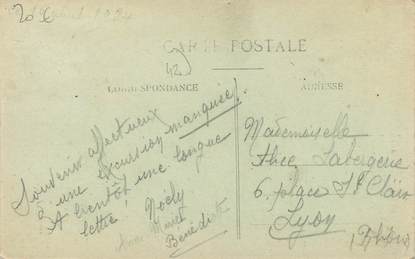 20 €
1924
CARTE POSTALE
42
CORRESPONDANCE
ADRESSE
Souvenir affectueux
d'une excursion manquée !
A bientôt une longue
lettre !
Noëly
Muret
Bénédicte
Mademoiselle
Alice Labergerie
6, place St Clair
Lyon
(Rhône)